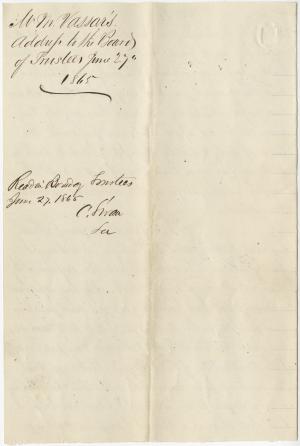 Mr M. Vassar's
Address to the Board
of Trustees June 27th
1865
Read in Board of Trustees
June 27. 1865
C. Swan
Sec